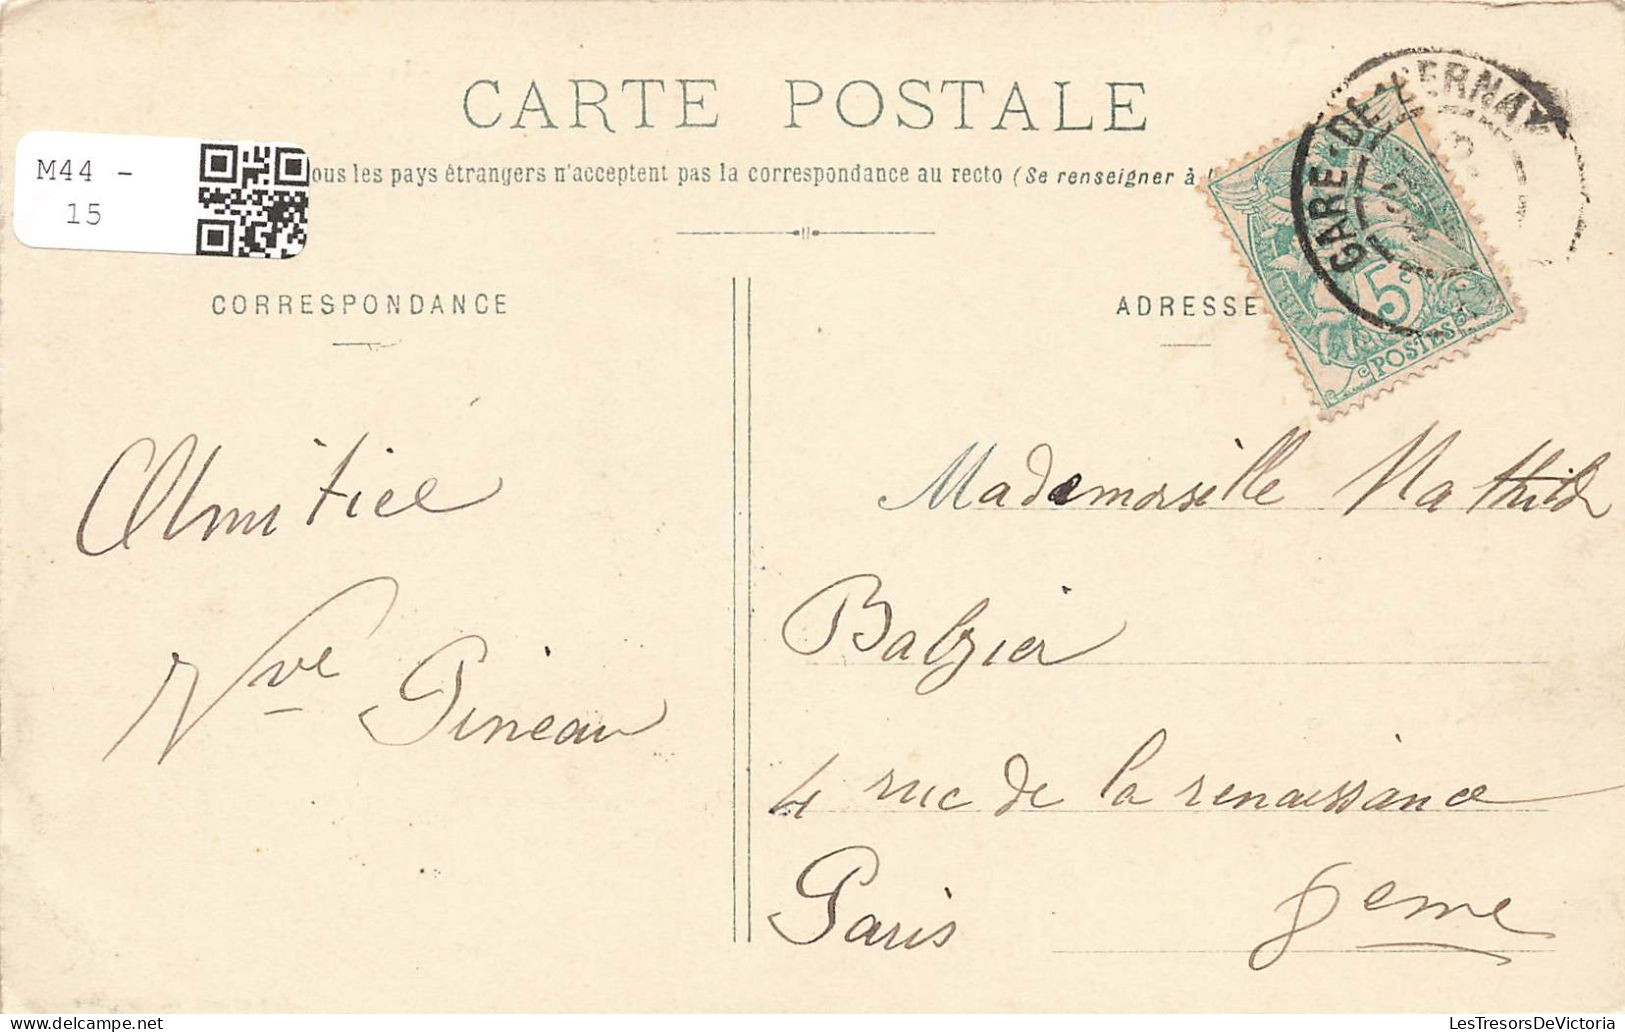 CARTE POSTALE
M44 -
15
ous les pays étrangers n'acceptent pas la correspondance au recto (Se renseigner à
CORRESPONDANCE
ADRESSE
GARE DE
5c
POSTES
Amitiee
Vve Pineau
Mademoiselle Mathilde
Balzier
4 rue de la renaissance
Paris 8eme
LesTresorsDeVictoria
https://www.delcampe.net